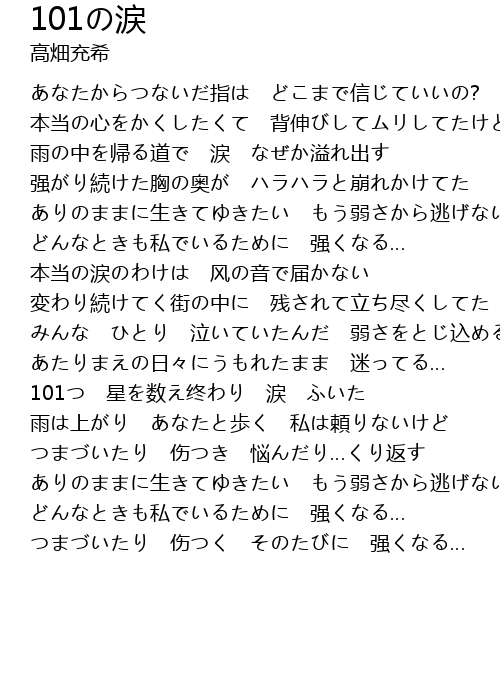 101の涙
高畑充希
あなたからつないだ指は　どこまで信じていいの?
本当の心をかくしたくて　背伸びしてムリしてたけど
雨の中を帰る道で　涙　なぜか溢れ出す
强がり続けた胸の奥が　ハラハラと崩れかけてた
ありのままに生きてゆきたい　もう弱さから逃げない
どんなときも私でいるために　强くなる...
本当の涙のわけは　风の音で届かない
変わり続けてく街の中に　残されて立ち尽くしてた
みんな　ひとり　泣いていたんだ　弱さをとじ込める
あたりまえの日々にうもれたまま　迷ってる...
101つ　星を数え终わり　涙　ふいた
雨は上がり　あなたと歩く　私は頼りないけど
つまづいたり　伤つき　悩んだり...くり返す
ありのままに生きてゆきたい　もう弱さから逃げない
どんなときも私でいるために　强くなる...
つまづいたり　伤つく　そのたびに　强くなる...